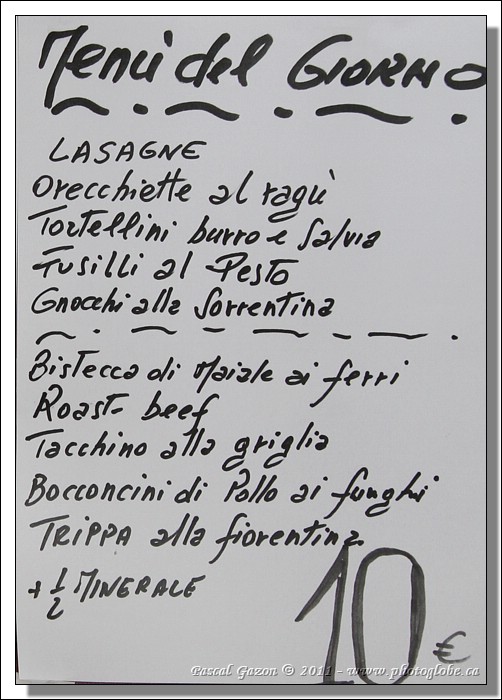 Menù del GIORNO
LASAGNE
Orecchiette al ragù
Tortellini burro e Salvia
Fusilli al Pesto
Gnocchi alla Sorrentina
Bistecca di Maiale ai ferri
Roast-beef
Tacchino alla griglia
Bocconcini di Pollo ai funghi
TRIPPA alla fiorentina
+ 1/2 MINERALE
10 €
Pascal Gazon © 2011 - www.photoglobe.ca